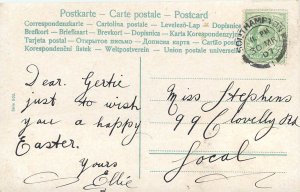 Postkarte - Carte postale - Postcard
Correspondenzkarte - Cartolina postale - Levelező-Lap - Dopisnice
Brefkort - Briefkaart - Brevkort - Dopisnica - Karta Korespondencyjna
Korespondenční lístek - Weltpostverein - Union postale universelle
SOUTHAMPTON
Dear. Gertie
just to wish
you a happy
Easter.
Yours
Ellie
Miss Stephens
99 Clovelly Rd
Local